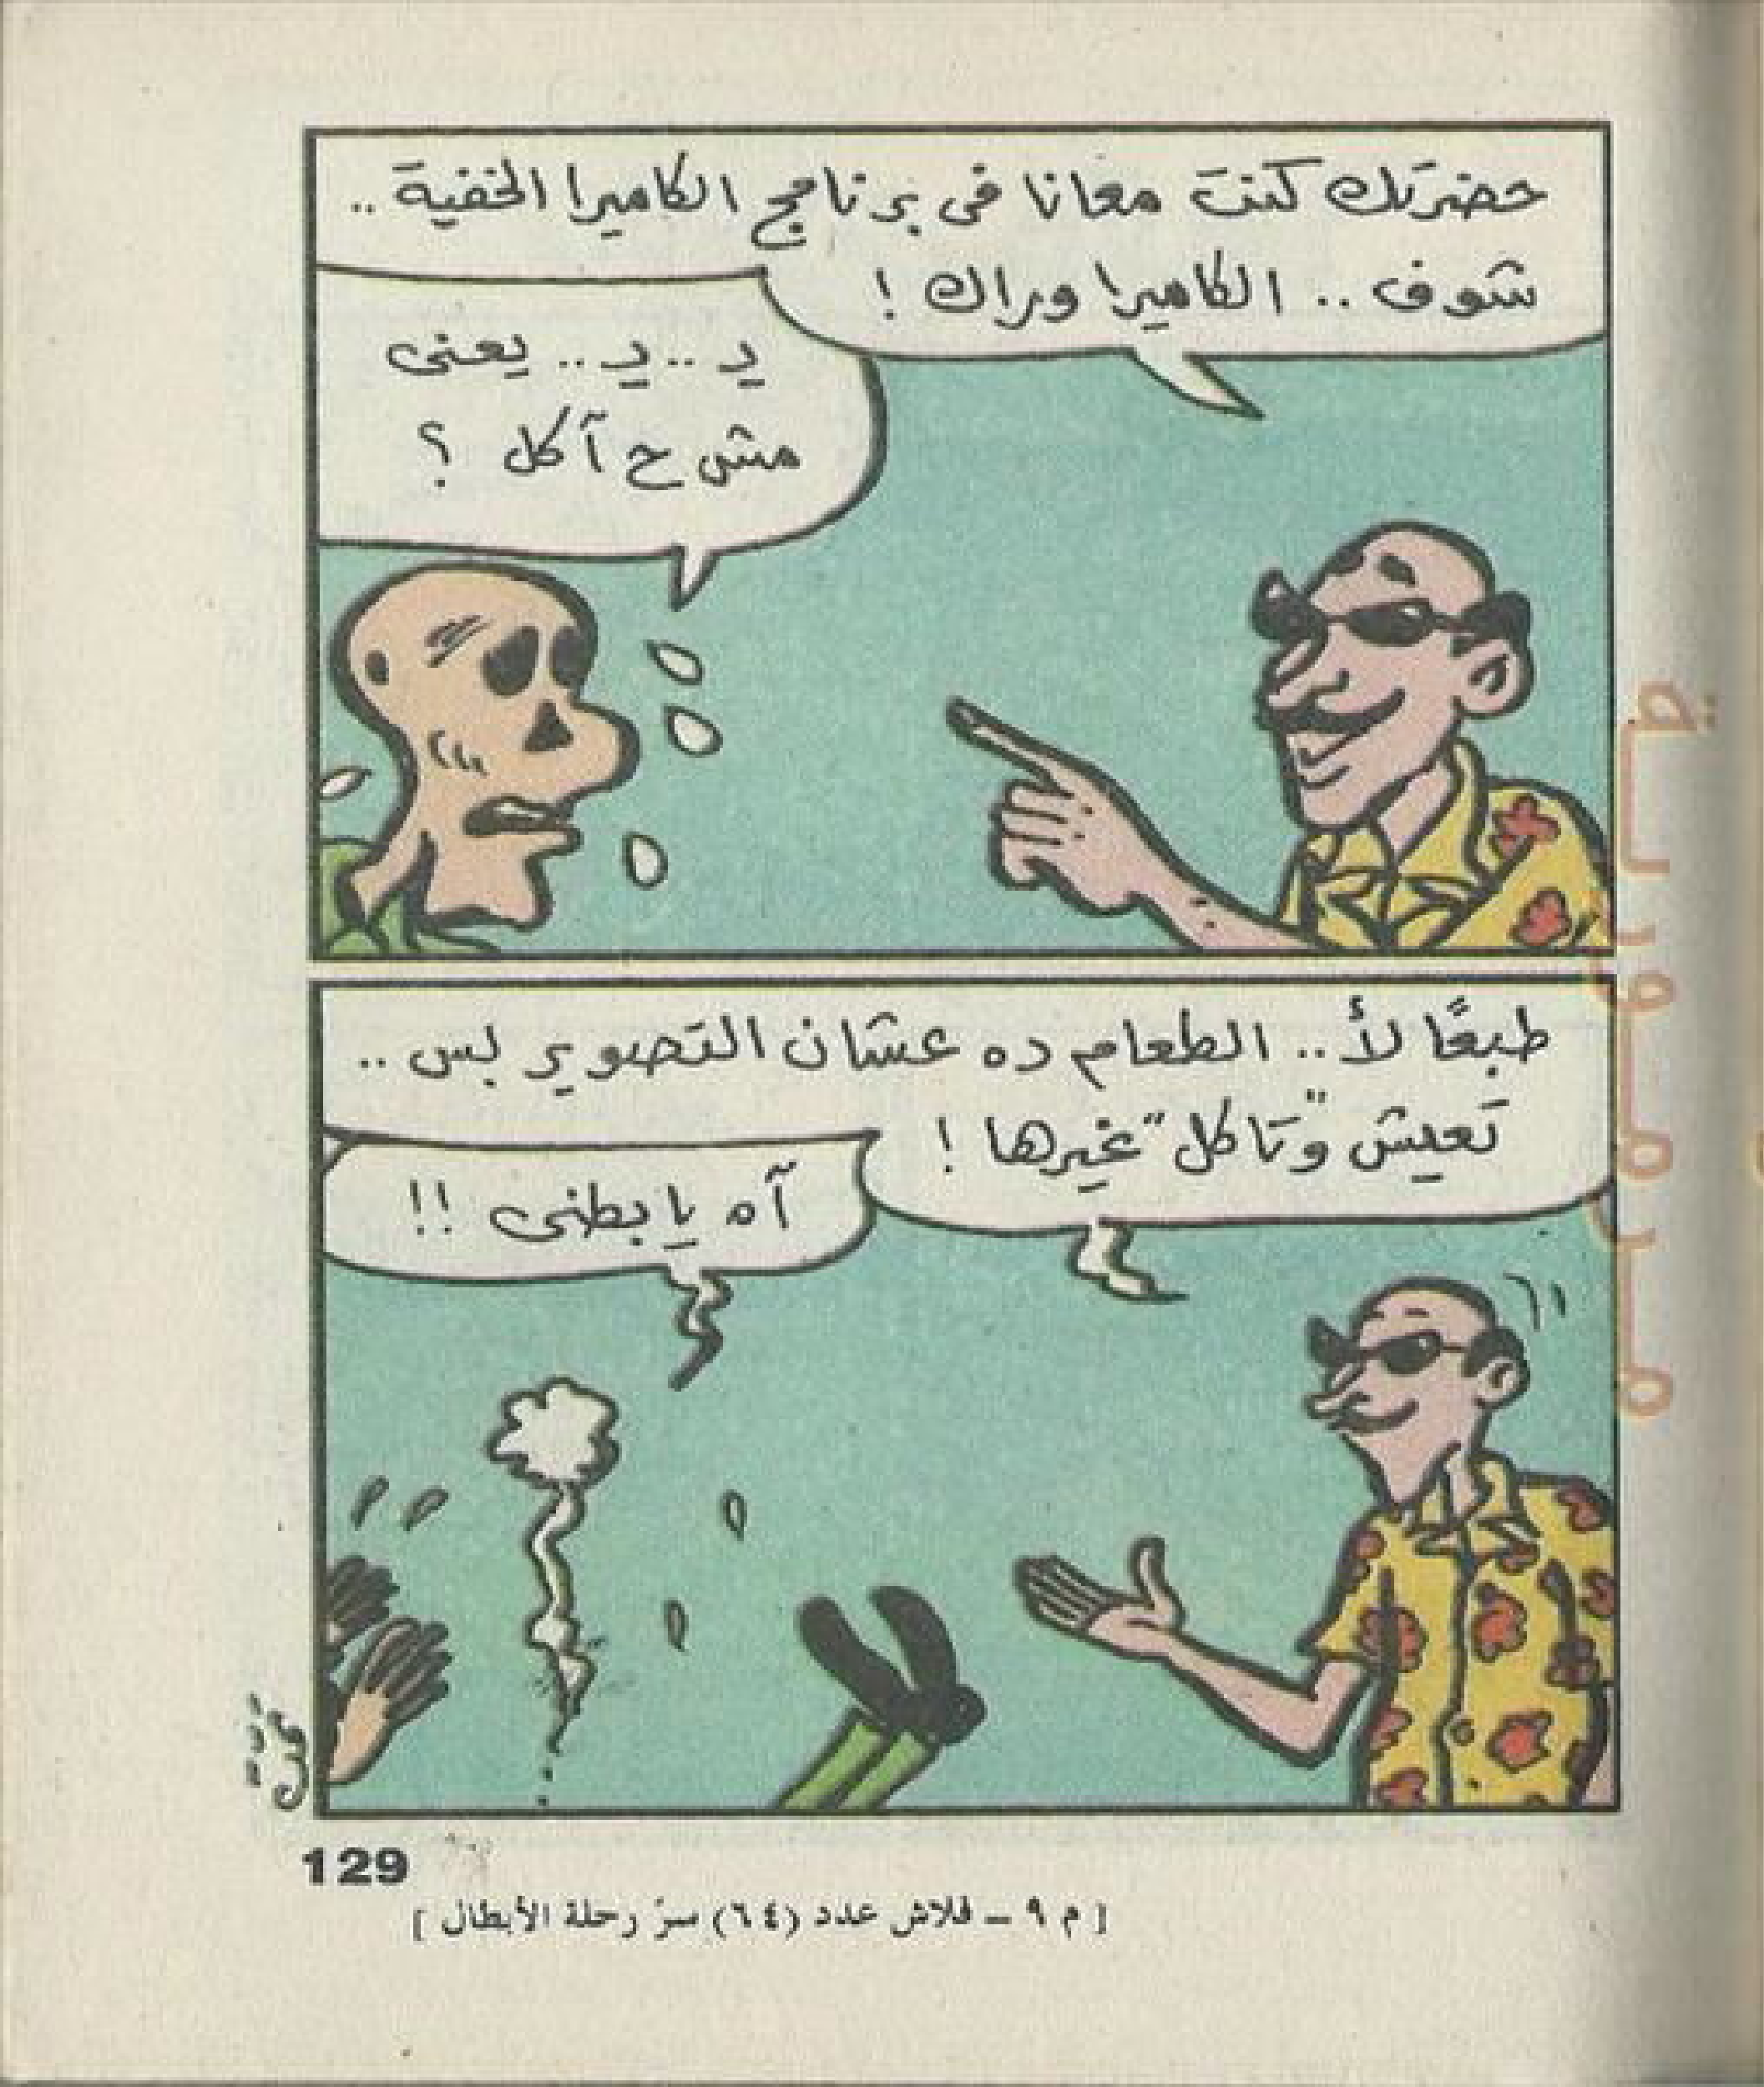 حضرتك كنت معانا فى برنامج الكاميرا الخفية ..
شوف .. الكاميرا وراك !
يـ .. يـ .. يعنى
مش ح آكل ؟
طبعًا لأ .. الطعام ده عشان التصوير بس ..
تعيش و"تاكل" غيرها !
آه يا بطنى !!
129
[ م ٩ – فلاش عدد (٦٤) سرّ رحلة الأبطال ]